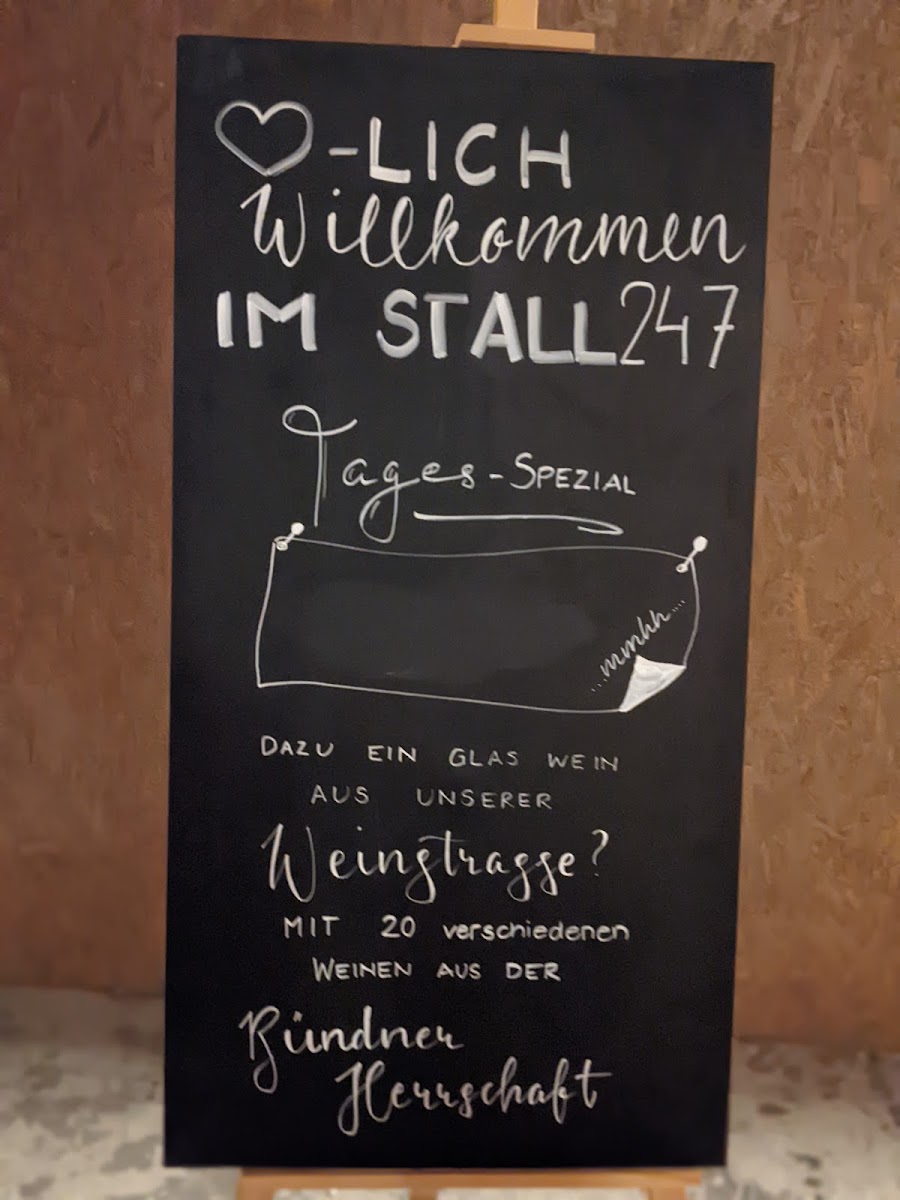 ♡-LICH
Willkommen
IM STALL 247
Tages-SPEZIAL
...mmhh...
DAZU EIN GLAS WEIN
AUS UNSERER
Weinstrasse?
MIT 20 verschiedenen
WEINEN AUS DER
Bündner
Herrschaft